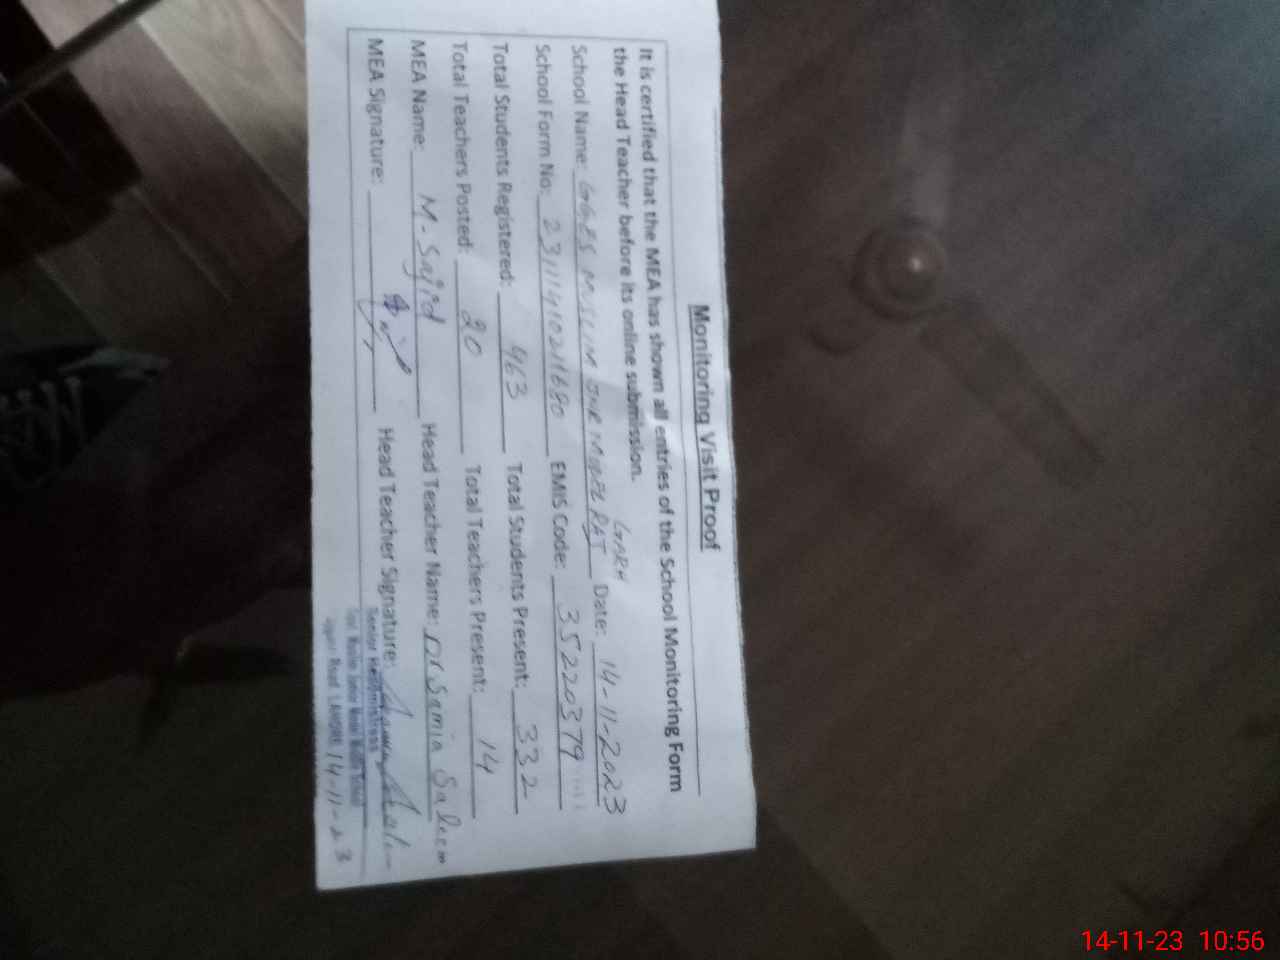 Monitoring Visit Proof
It is certified that the MEA has shown all entries of the School Monitoring Form
the Head Teacher before its online submission.
School Name: GGES MUSLIM JNR MODEL RAJ GARH Date: 14-11-2023
School Form No: 23111410211680 EMIS Code: 35220379
Total Students Registered: 463 Total Students Present: 332
Total Teachers Posted: 20 Total Teachers Present: 14
MEA Name: M-Sajid Head Teacher Name: Dr Samia Saleem
MEA Signature: Head Teacher Signature:
Senior Headmistress
Govt Muslim Junior Model School
Road LAHORE 14-11-23
14-11-23 10:56